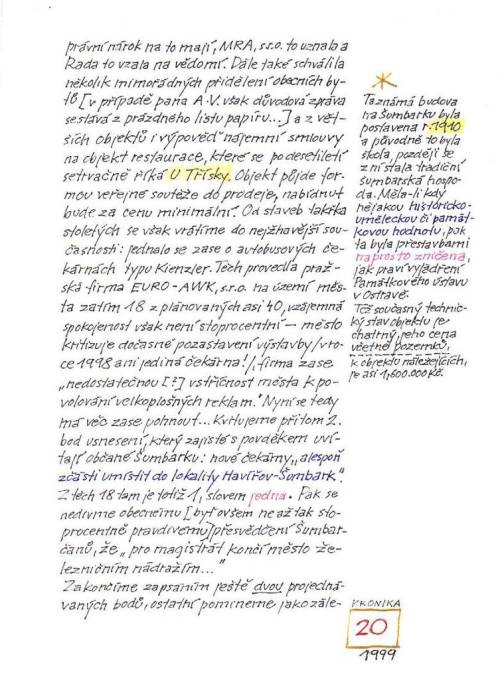 právní nárok na to mají, MRA, s.r.o. to uznala a
Rada to vzala na vědomí. Dále také schválila
několik mimořádných přidělení obecních by-
tů [v případě pana A.V. však důvodová zpráva
sestává z prázdného listu papíru...] a z vět-
ších objektů i výpověď nájemní smlouvy
na objekt restaurace, které se po desetiletí
setrvačně říká U Třísky. Objekt půjde for-
mou veřejné soutěže do prodeje, nabídnut
bude za cenu minimální. Od staveb takřka
stoletých se však vrátíme do nejžhavější sou-
časnosti: jednalo se zase o autobusových če-
kárnách typu Kienzler. Těch provedla praž-
ská firma EURO-AWK, s.r.o. na území měs-
ta zatím 18 z plánovaných asi 40, vzájemná
spokojenost však není stoprocentní — město
kritizuje dočasné pozastavení výstavby /v ro-
ce 1998 ani jediná čekárna!/, firma zase
„nedostatečnou [?] vstřícnost města k po-
volování velkoplošných reklam." Nyní se tedy
má věc zase pohnout... Kvitujeme přitom 2.
bod usnesení, který zajisté s povděkem uví-
tají občané Šumbarku: nové čekárny „alespoň
zčásti umístit do lokality Havířov-Šumbark".
Z těch 18 tam je totiž 1, slovem jedna. Pak se
nedivme obecnému [byť ovšem ne až tak sto-
procentně pravdivému] přesvědčení Šumbar-
čanů, že „pro magistrát končí město že-
lezničním nádražím..."
Zakončíme zapsáním ještě dvou projedná-
vaných bodů, ostatní pomineme jako zále-
*
Ta známá budova
na Šumbarku byla
postavena r. 1910
a původně to byla
škola, později se
z ní stala tradiční
šumbarská hospo-
da. Měla-li kdy
nějakou historicko-
uměleckou či památ-
kovou hodnotu, pak
ta byla přestavbami
naprosto zničena,
jak praví vyjádření
Památkového ústavu
v Ostravě.
Též současný technic-
ký stav objektu je
chatrný, jeho cena
včetně pozemků,
k objektu náležejících,
je asi 1,600.000 Kč.
KRONIKA
20
1999